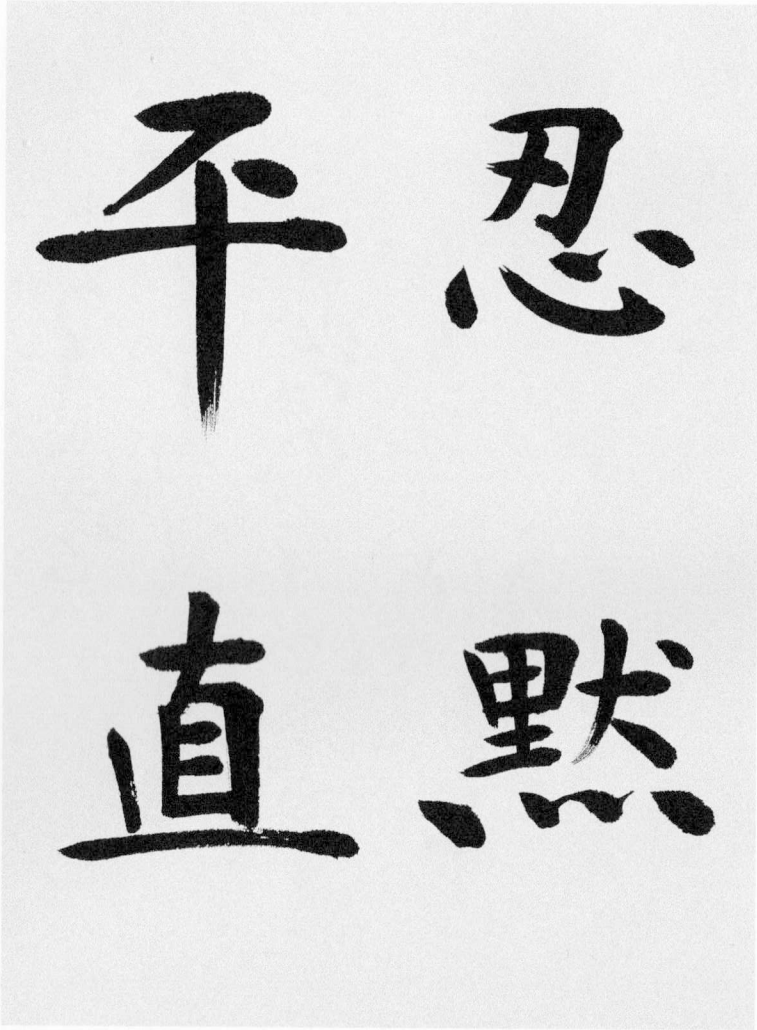 忍默
平直